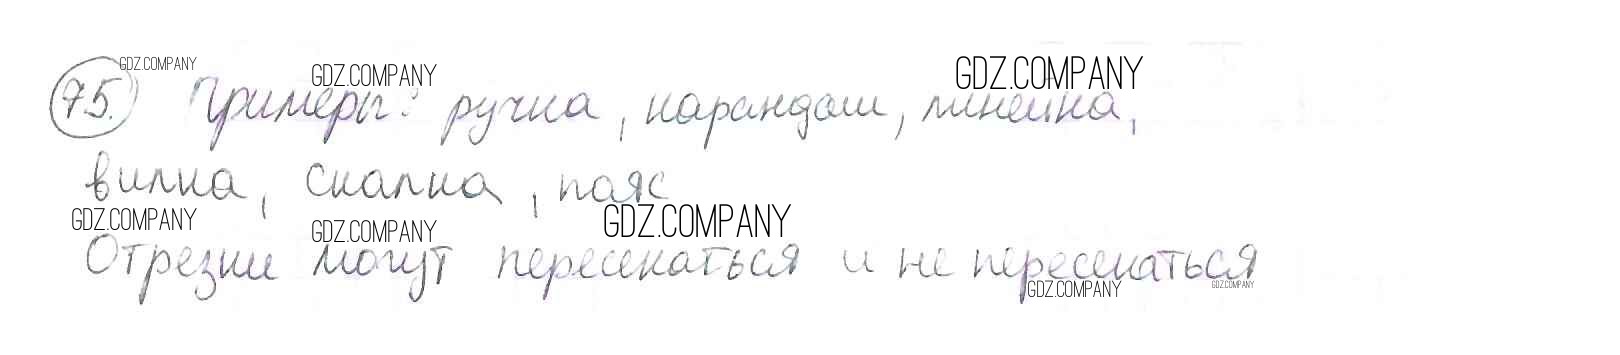 GDZ.COMPANY GDZ.COMPANY GDZ.COMPANY
75. Примеры: ручка, карандаш, линейка,
вилка, скалка, пояс
GDZ.COMPANY GDZ.COMPANY GDZ.COMPANY
Отрезки могут пересекаться и не пересекаться
GDZ.COMPANY GDZ.COMPANY